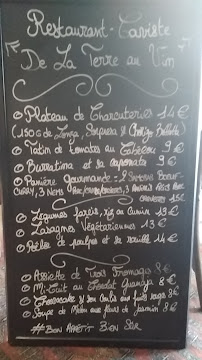 Restaurant-Caviste
De La Terre au Vin
Plateau de Charcuteries 14€
(150G de Lonza, Soupressa & Bellota)
Tatin de tomates au 9€
Burratina et sa caponata 9€
Panière Gourmande: 2 Samossa Boeuf-
Curry, 3 Nems
Légumes farcis, riz au cumin 13€
Lasagnes Végétariennes 13€
Poêlée de poulpes et sa rouille 14€
Assiette de Trois Fromages 8€
Mi-Cuit au Chocolat Guanaja 8€
Cheesecake et son coulis aux fruits rouges 8€
Soupe de Melon aux fleurs de Jasmin 8€
#Bon Appétit Bien Sûr